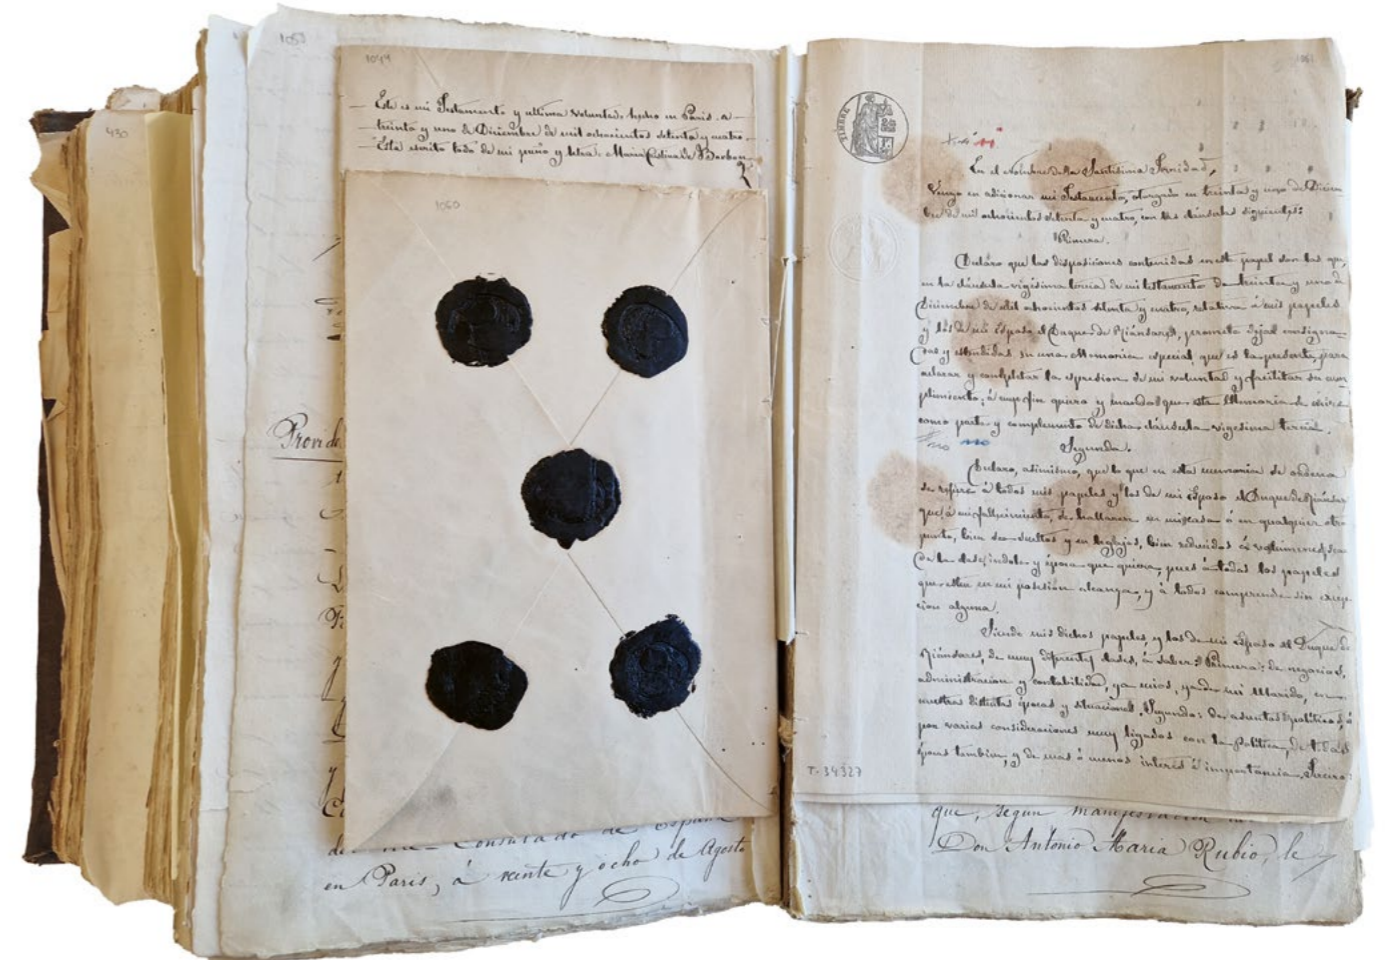 1053
1044
430
Este es mi Testamento y ultima voluntad, hecho en Paris a
treinta y uno de Diciembre de mil ochocientos setenta y cuatro.
Está escrito todo de mi puño y letra. Maria Cristina de Borbon
1060
Provide
Consulado de España
en Paris, à veinte y ocho de Agosto
1061
TIMBRE
En el Nombre de la Santisima Trinidad,
Vengo en adicionar mi Testamento, otorgado en treinta y uno de Diciem
bre de mil ochocientos setenta y cuatro, con las cláusulas siguientes:
Primera.
Declaro que las disposiciones contenidas en este papel son las que,
en la cláusula vigésima tercia de mi testamento de treinta y uno de
Diciembre de mil ochocientos setenta y cuatro, relativa à mis papeles
y los de mi Esposo el Duque de Riánsares, prometo dejar consigna-
das y estendidas en una Memoria especial, que es la presente, para
aclarar y completar la espresion de mi voluntad y facilitar su cum
plimiento; á cuyo fin quiero y mando que esta Memoria se
como parte y complemento de dicha cláusula vigesima tercia.
no no
Segunda.
Declaro, asimismo, que lo que en esta memoria se ordena
se refiere à todos mis papeles y los de mi Esposo el Duque de Riánsares
que, á mi fallecimiento, se hallaren en mi casa ó en cualquier otro
punto, bien sean sueltos y en legajos, bien reducidos à volumenes, sean
de la clase, indole y época que quiera, pues á todos los papeles
que esten en mi posesion alcanza, y à todos comprende sin excep
cion alguna.
Siendo mis dichos papeles, y los de mi Esposo el Duque de
Riánsares, de muy diferentes clases, à saber: Primera: de negocios,
administracion y contabilidad, ya mios, ya de mi Marido, en
nuestras distintas épocas y situaciones. Segunda: de asuntos politicos, ó
por varias consideraciones muy ligados con la politica, de
épocas tambien, y de mas ó menos interes é importancia. Tercera:
T-34327
que, segun manifestacion
Don Antonio Maria Rubio, le